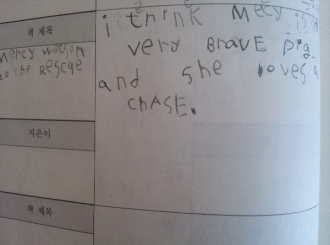 책 제목
Mercy Watson
to the Rescue
지은이
책 제목
i think Mecy is a
very BRAVE pig.
and she loves
chASE.